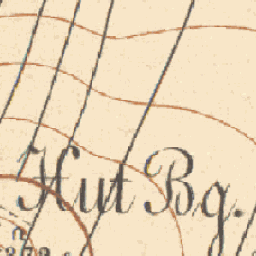 Hut Bg.